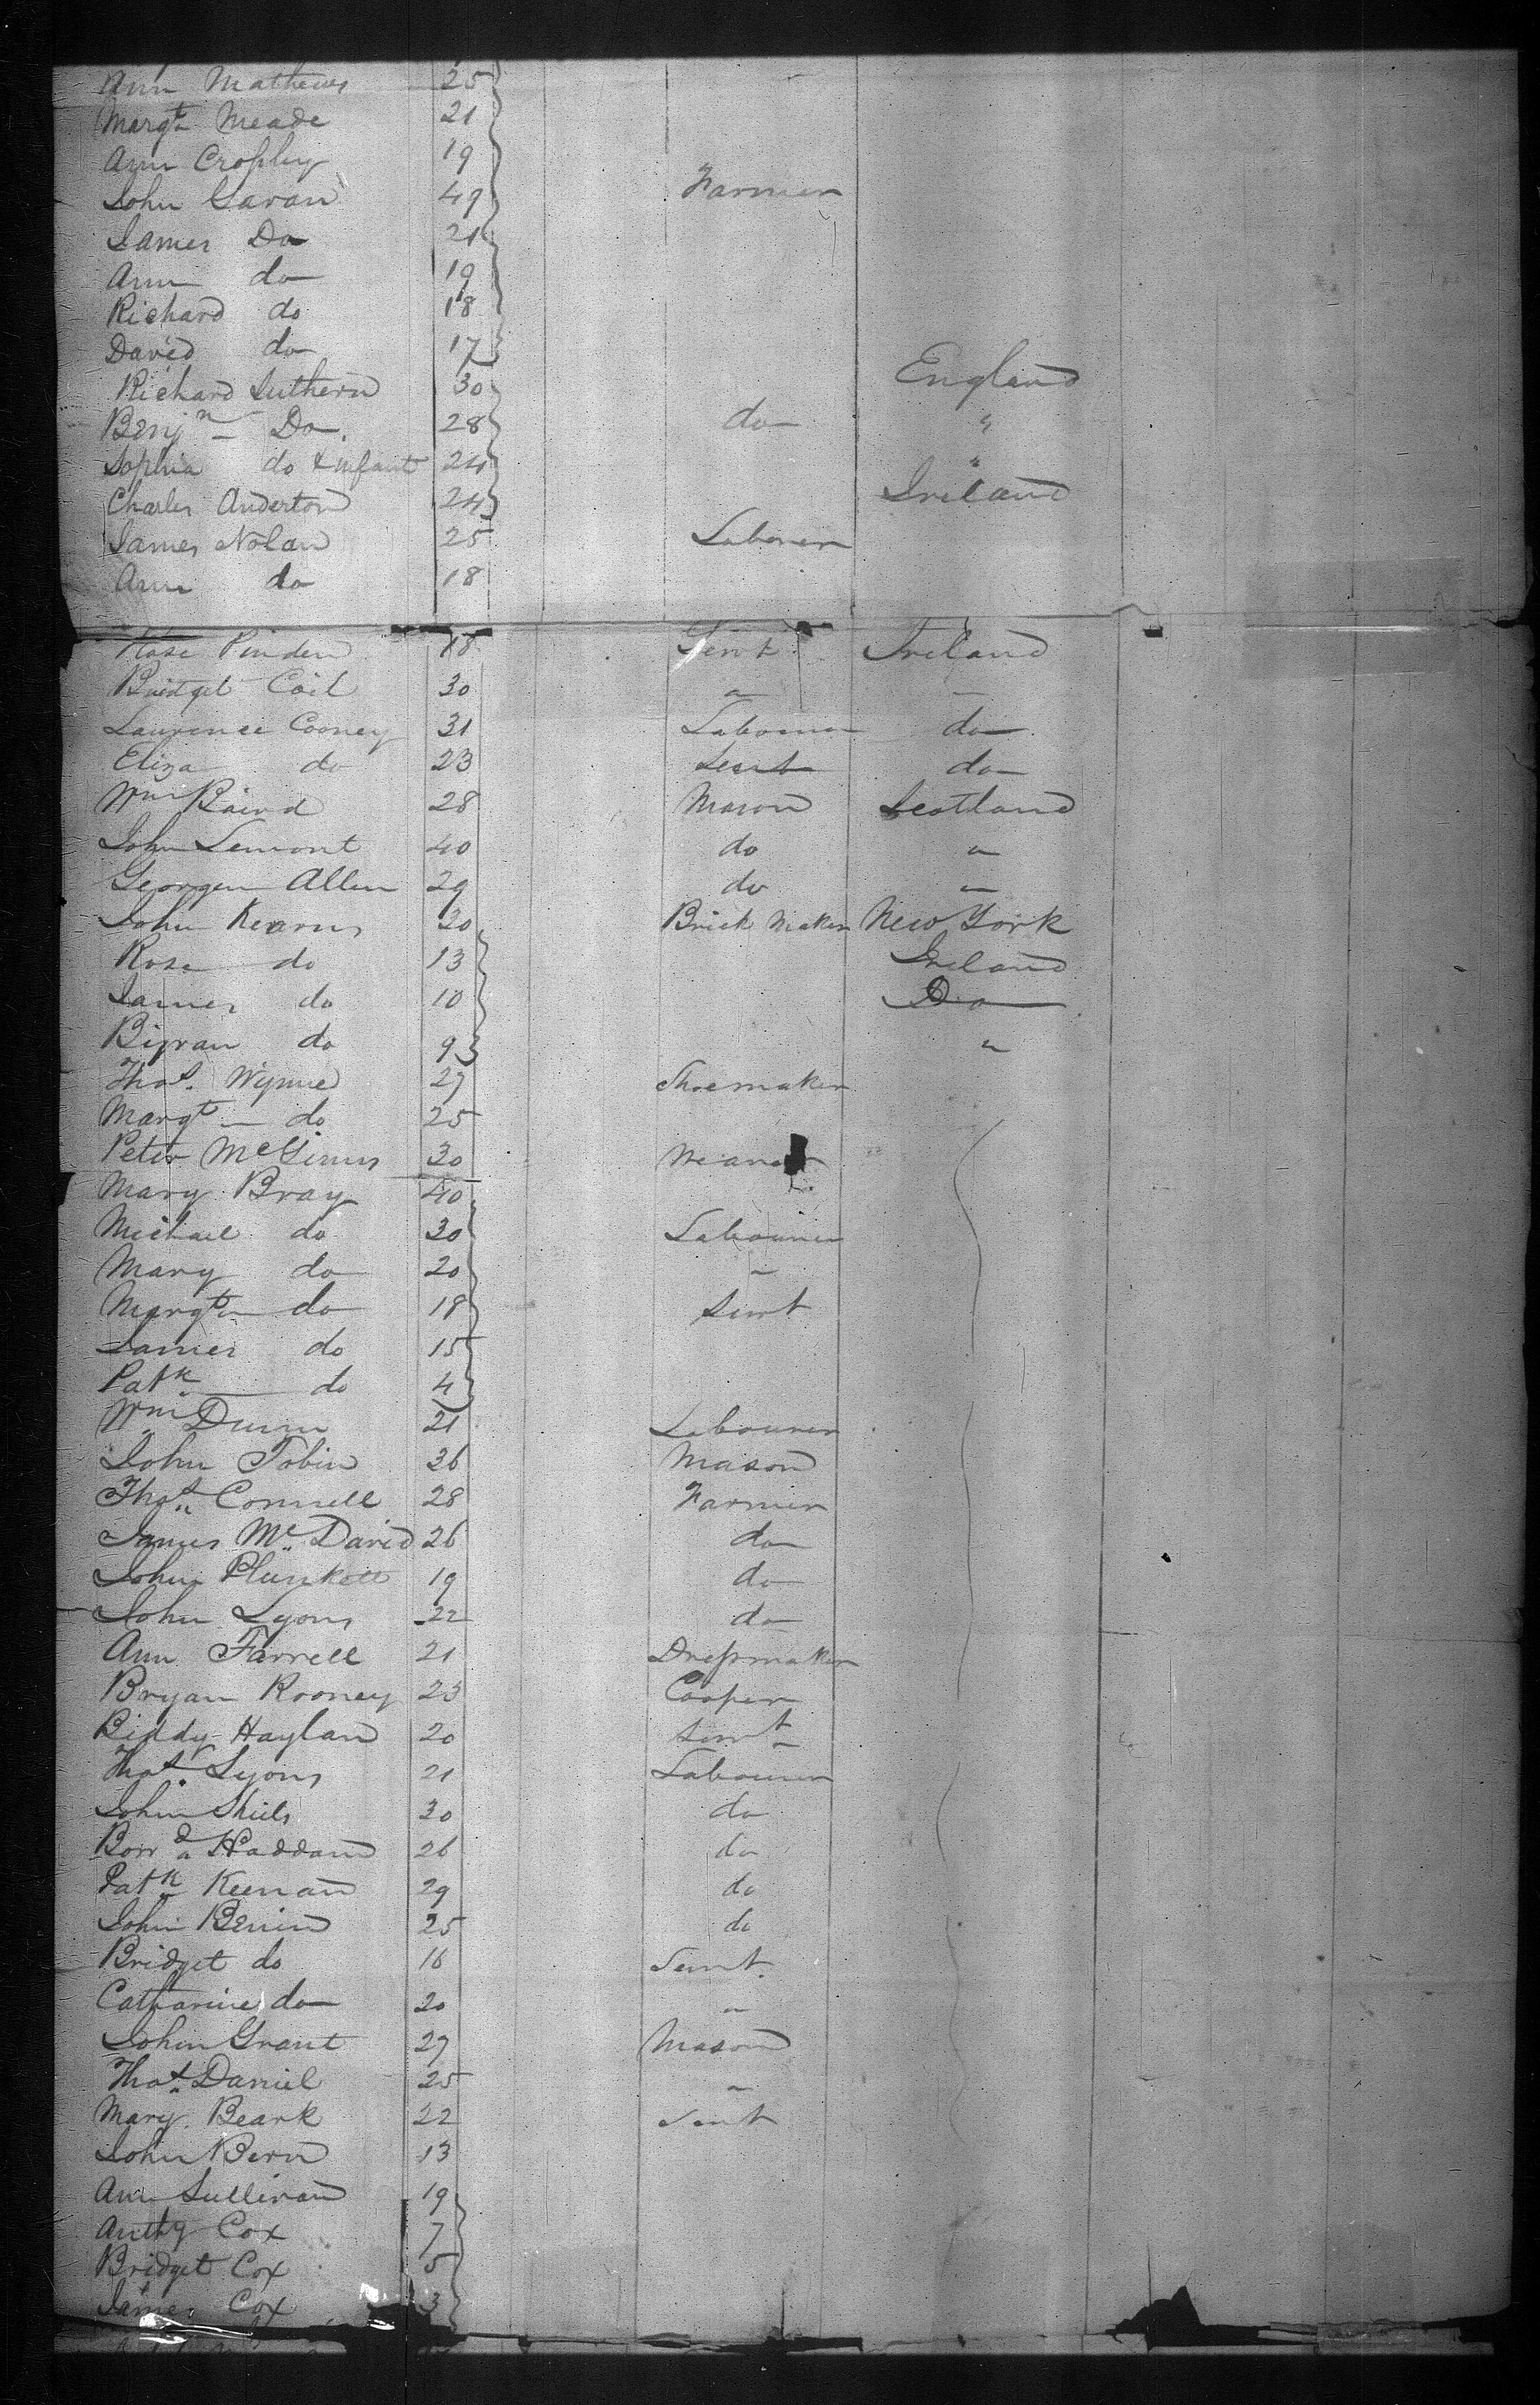 Ann Mathews 25
Margt Meade 21
Ann Cropley 19
John Gavan 49 Farmer
James Do 21
Ann do 19
Richard do 18
David do 17
Richard Suthern 30 England
Benjn Do. 28 do "
Sophia do & infant 24 "
Charles Anderton 24 Ireland
James Nolan 25 Laborer
Ann do 18
Rose 18 Servt Ireland
Bridget Coil 30 "
Laurence Cooney 31 Labourer do
Eliza do 23 Servt do
Wm Baird 28 Mason Scotland
John Lemont 40 do "
George Allen 29 do "
John Kearns 30 Brick Maker New York
Rose do 13 Ireland
James do 10 Do
do 9 "
Thos. Wynne 27 Shoemaker
Margt do 25
Peter McGinnis 30 Weaver
Mary Bray 40
Michael do 30 Labourer
Mary do 20 "
Margt do 18 Servt
James do 15
Patk do 4
Wm Dunn 21 Labourer
John Tobin 36 Mason
Thos Connell 28 Farmer
James Mc David 26 do
John Plunkett 19 do
John Lyons 22 do
Ann Farrell 21 Dressmaker
Bryan Rooney 23 Cooper
Biddy Haylan 20 Servt
Thos. Lyons 21 Labourer
John Shiels 30 do
Haddam 26 do
Patk Keenan 29 do
John 25 do
Bridget do 16 Servt.
Catharine do 20 "
John Grant 27 Mason
Thos Daniel 25 "
Mary Beark 22 Servt
John Bern 13
Ann Sullivan 19
Anthy Cox 7
Bridget Cox 5
James Cox 3